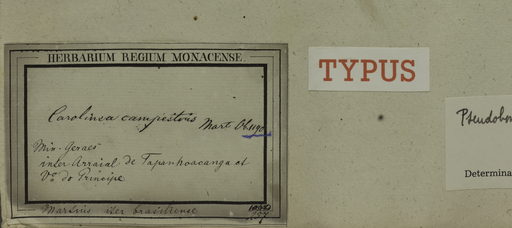 HERBARIUM REGIUM MONACENSE
Carolinea campestris Mart. Obs. 1190
Min. Geraes
inter Arraial de Tapanhoacanga et
Va. do Principe
Martius iter brasiliense
297
TYPUS
Pseudobom
Determina